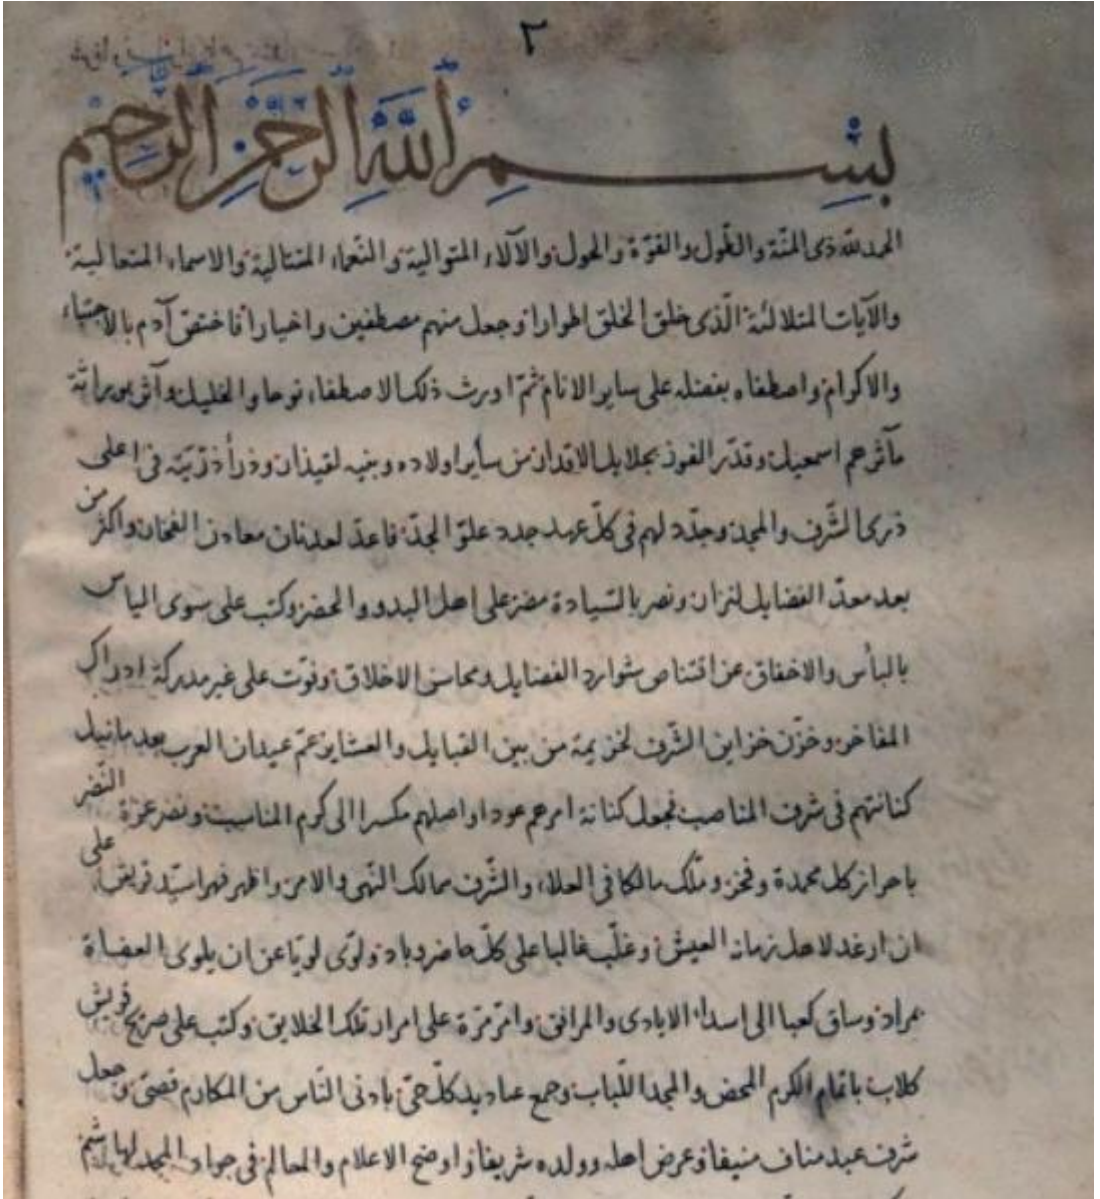 ٢
بِسْمِ اللَّهِ الرَّحْمٰنِ الرَّحِيمِ
الحمد لله ذى المنّة والطّول والقوّة والحول والآلاء المتوالية والنّعماء المتتالية والاسماء المتعالية
والآيات المتلالئة الّذى خلق الخلق اطوارا وجعل منهم مصطفين واخيارا فاختصّ آدم بالاجتباء
والاكرام واصطفاه بفضله على ساير الانام ثمّ اورث ذلك الاصطفاء نوحا والخليل وآثر بوراثة
مآثرهم اسمعيل وقدّر الفوز بجلايل الاقدار من ساير اولاده وبنيه لقيذار وذرأ ذرّيّته فى اعلى
ذرى الشّرف والمجد وجدّد لهم فى كلّ عهد جدد علوّ الجدّ فاعدّ لعدنان معادن الفخار واكثر من
بعد معدّ الفضايل لنزار ونصر بالسّيادة مضر على اهل البدو والحضر وكتب على سوى الياس
بالبأس والاخفاق عن اقتناص شوارد الفضايل ومحاسن الاخلاق وفوّت على غير مدركة ادراك
المفاخر وخزّن خزاين الشّرف لخزيمة من بين القبايل والعشاير عمّ عيدان العرب بعد ما نيل
كنانتهم فى شرف المناصب فجعل كنانة امرهم عودا واصلهم مكسرا الى كرم المناسب ونضر عزة النّضر
باحراز كل محمدة وفخر وملّك مالكا فى العلاء والشّرف ممالك النّهى والامر واظهر فهرا سيّد قريش على
ان ارغد لاهل زمانه العيش وغلّب غالبا على كلّ حاضر وباد ولوّى لويّا عن ان يلوى العضاة
بمراد وساق كعبا الى اسداء الايادى والمرافق وامّر مرّة على امراء تلك الخلايق وكتب على صريح قريش
كلاب باتمام الكرم المحض والمجد اللّباب وجمع عباديد كلّ حىّ بادنى النّاس من المكارم قصىّ وجعل
شرف عبد مناف منيفا وعرض اهله وولده شريفا واوضح الاعلام والمعالم فى جواد المجد لهاشم